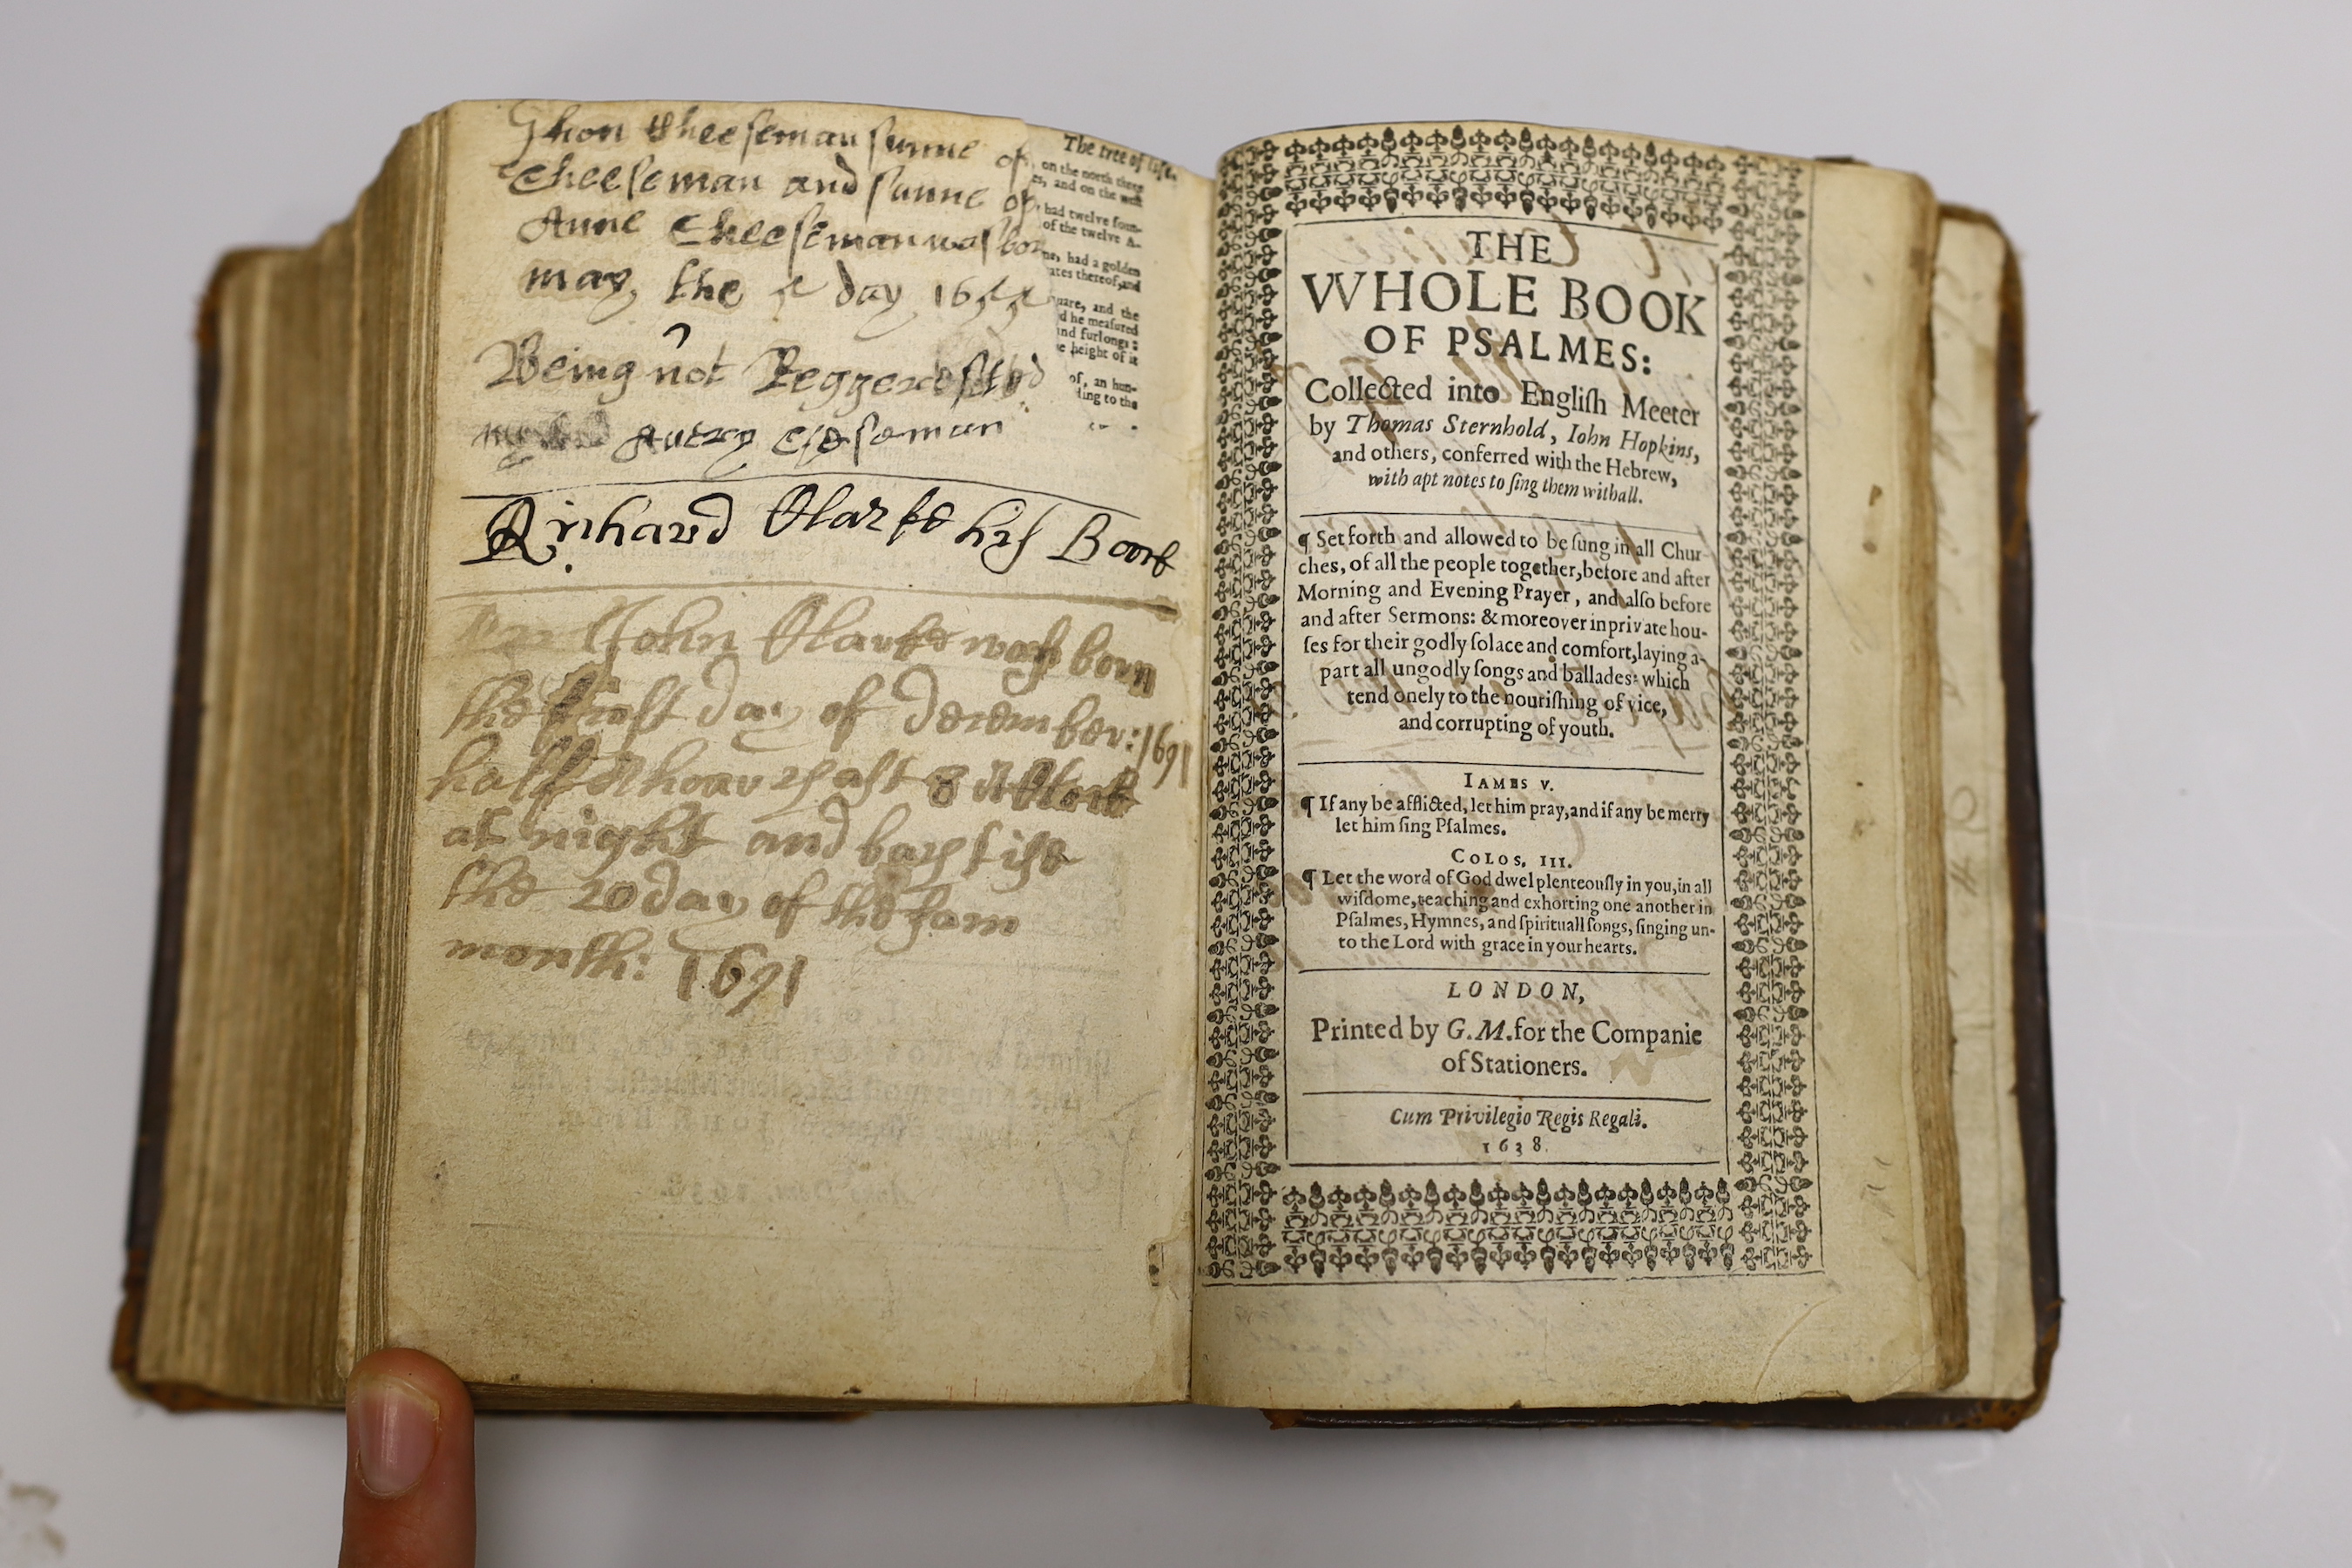 Ghon Cheeseman sunne of
Cheeseman and sunne of
Anne Cheeseman was bor
may the day 16
Being not Reggeres
Avery
Richard Clarke his Boock
John Clarke wash born
the first day of december: 1691
half A hour past 8 a Clock
at night and baptise
the 20 day of the sam
month: 1691
The tree of life.
on the north three
es, and on the west
had twelve foun-
of the twelve A-
ne, had a golden
ates thereof, and
uare, and the
d he meaſured
and furlongs:
e height of it
of, an hun-
ding to the
THE
WHOLE BOOK
OF PSALMES:
Collected into Engliſh Meeter
by Thomas Sternhold, Iohn Hopkins,
and others, conferred with the Hebrew,
with apt notes to ſing them withall.
¶ Set forth and allowed to be ſung in all Chur-
ches, of all the people together, before and after
Morning and Evening Prayer, and alſo before
and after Sermons: & moreover in private hou-
ſes for their godly ſolace and comfort, laying a-
part all ungodly ſongs and ballades: which
tend onely to the nouriſhing of vice,
and corrupting of youth.
IAMES V.
¶ If any be afflicted, let him pray, and if any be merry
let him ſing Pſalmes.
COLOS. III.
¶ Let the word of God dwel plenteouſly in you, in all
wiſdome, teaching and exhorting one another in
Pſalmes, Hymnes, and ſpirituall ſongs, ſinging un-
to the Lord with grace in your hearts.
LONDON,
Printed by G. M. for the Companie
of Stationers.
Cum Privilegio Regis Regali.
1638.